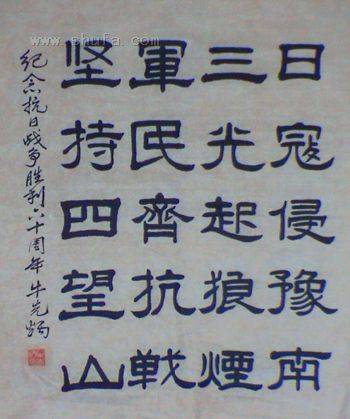 日寇侵豫南
三光起狼煙
軍民齊抗戦
坚持四望山
纪念抗日战争胜利六十周年 牛先炳